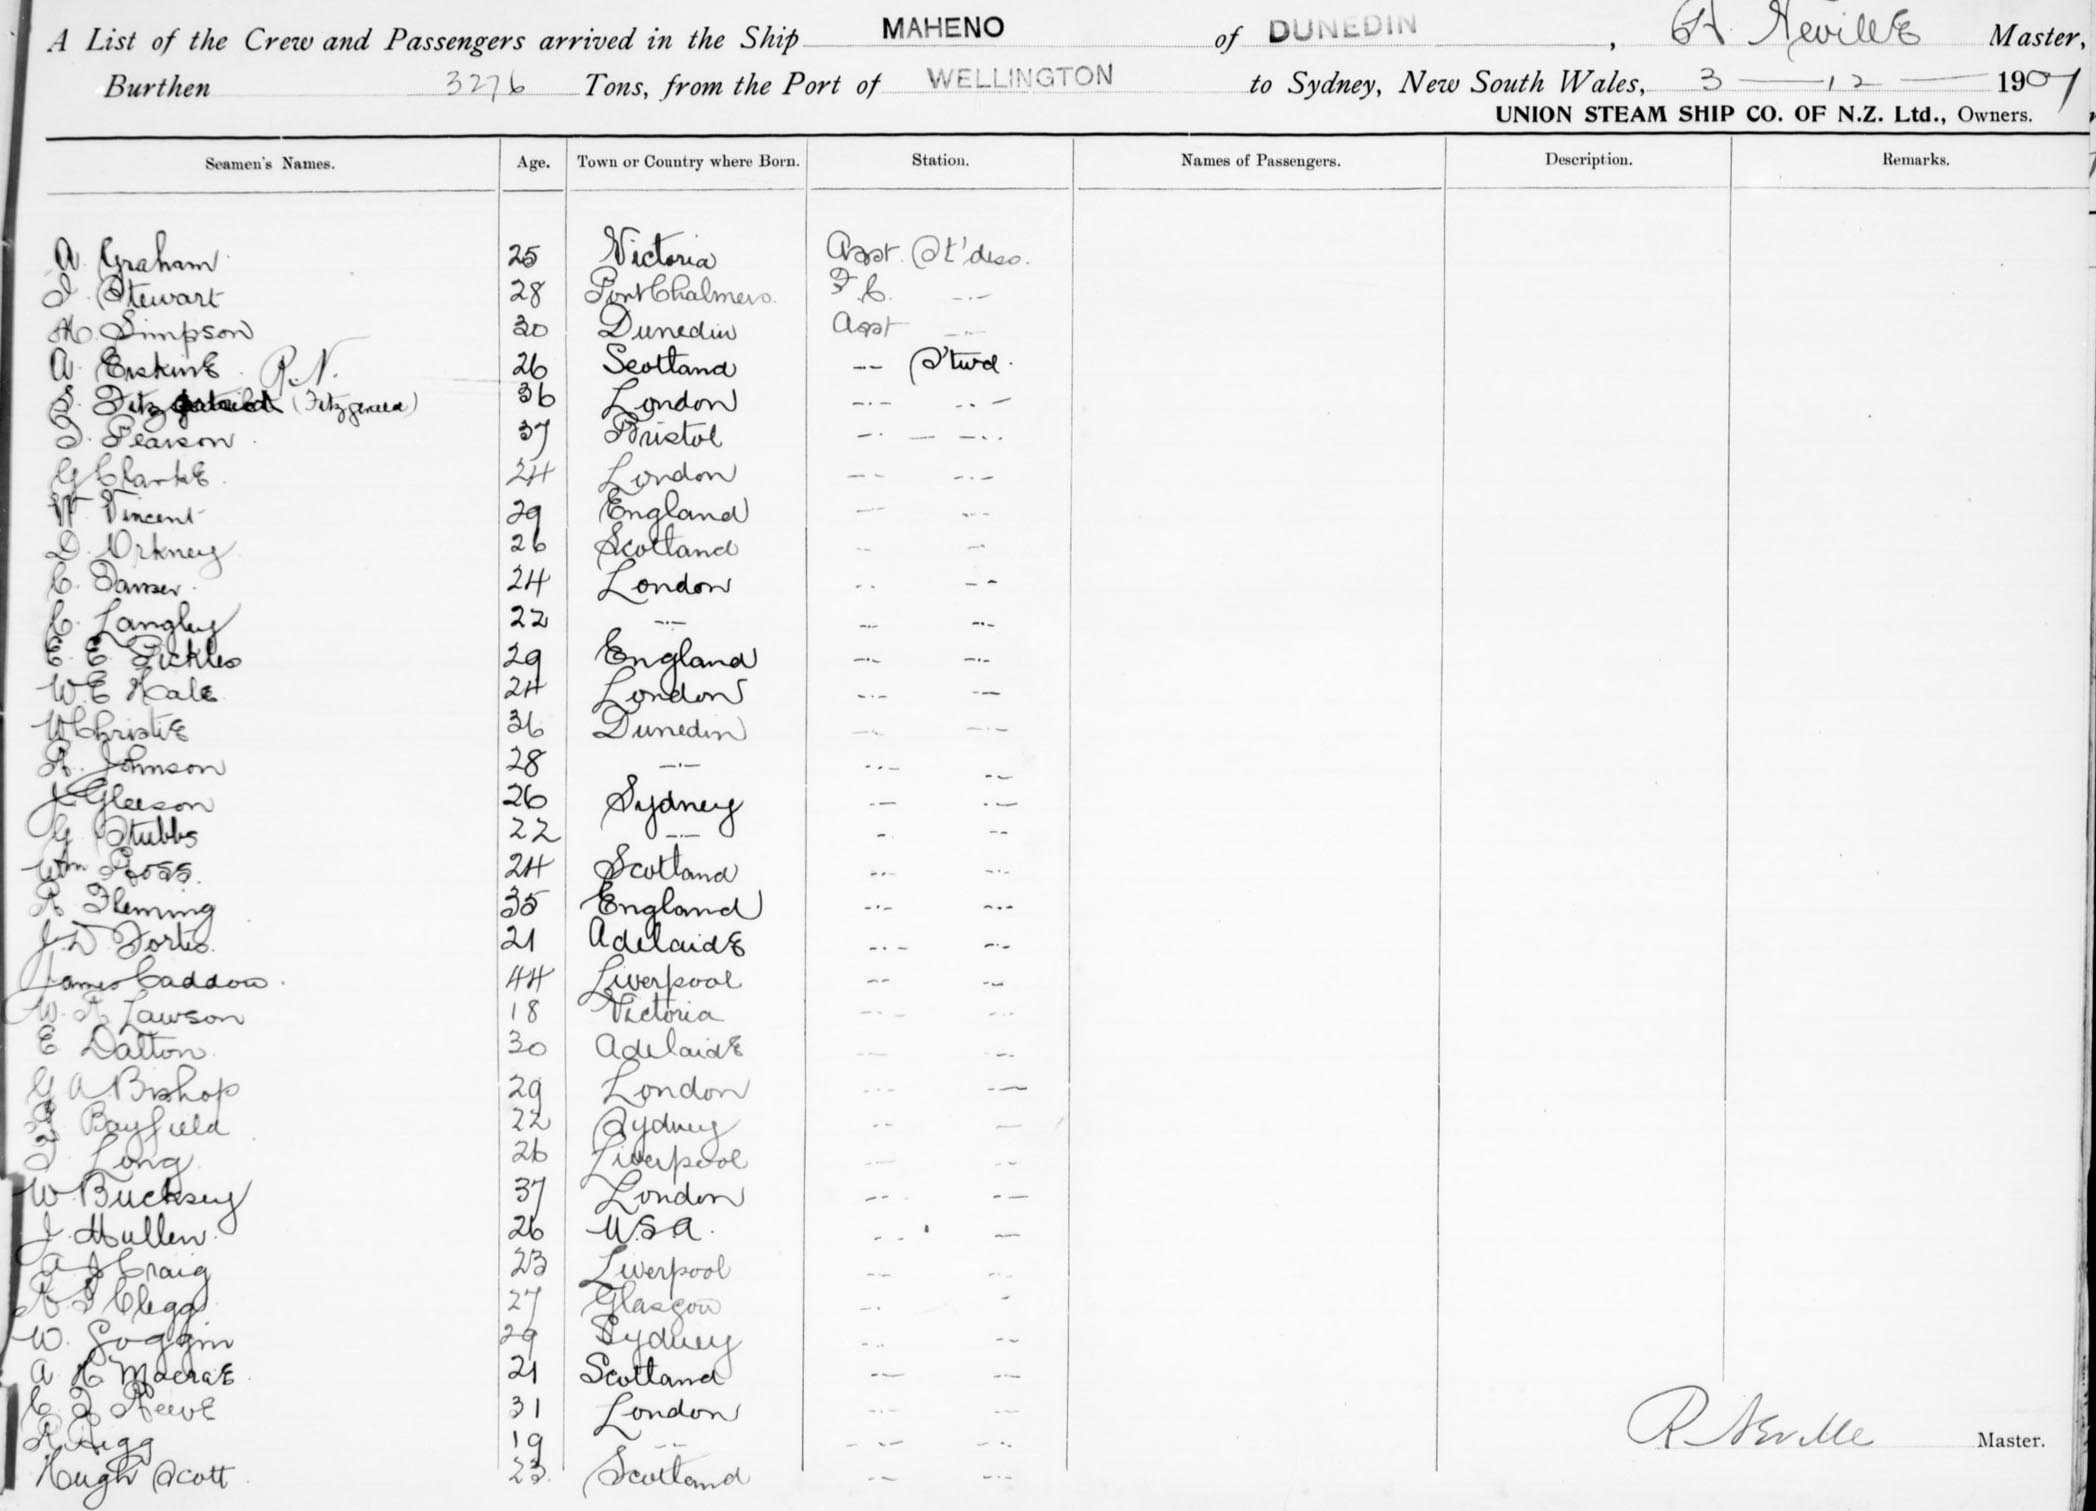 A List of the Crew and Passengers arrived in the Ship MAHENO of DUNEDIN, R. Neville Master,
Burthen 3276 Tons, from the Port of WELLINGTON to Sydney, New South Wales, 3 - 12 - 1907
UNION STEAM SHIP CO. OF N.Z. Ltd., Owners.
Seamen's Names. Age. Town or Country where Born. Station. Names of Passengers. Description. Remarks.
A. Graham 25 Victoria Asst. St'dess.
I. Stewart 28 Port Chalmers. F.C. -.-
M. Simpson 30 Dunedin Asst -.-
A. Erskine R.N. 26 Scotland -- S'twd.
S. Fitz (Fitzgerald) 36 London -.- -.-
I. Pearson 37 Bristol -.- -.-
G Clarke 24 London -- -.-
W. Vincent 29 England -.- -.-
D. Orkney 26 Scotland -- -
C. 24 London -- --
C. Langley 22 -.- -- -.-
E. E. Pickles 29 England -.- -.-
W. E Hale 24 London -.- --
W Christie 36 Dunedin -.- -.-
R. Johnson 28 -.- -.- -.-
J Gleeson 26 Sydney -.- -.-
G Stubbs 22 -.- - --
Wm Ross. 24 Scotland -.- -.-
R Fleming 35 England -.- -.-
J. D. 21 Adelaide -.- -.-
James Caddow. 44 Liverpool -- --
W. A Lawson 18 Victoria -.- --
E Dalton 30 Adelaide -.- --
G A Bishop 29 London -.- --
Bayfield 22 Sydney -- -
Long 26 Liverpool -.- --
W. Bucksey 37 London -.- --
J. Hullen. 26 U.S.A. -.- -
A J Craig 23 Liverpool -- -.-
Clegg 27 Glasgow -. -
W. Goggin 29 Sydney -. --
A. H Macrae 21 Scotland -- --
C. Reeve 31 London -.- --
R Rigg 19 -- -- -.-
Hugh Scott 23. Scotland -- -.-
R Neville Master.